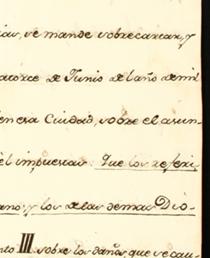 se mande sobrecartar, y
catorce de Junio del año de mil
Ciudad, sobre el asun-
el impuestas: que los referi
ano; y los de las demas Dio-
III sobre los daños, que se cau